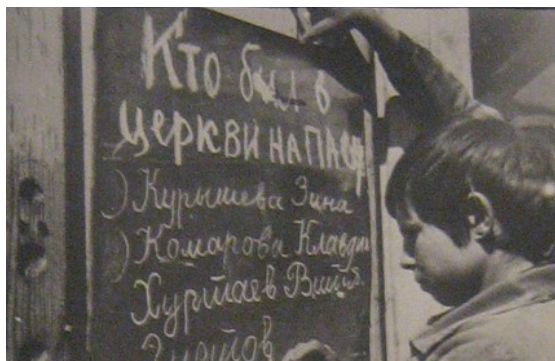 Кто был в
церкви на Пасху
) Курышева Зина
) Комарова Клавдия
Хуртаев Витя